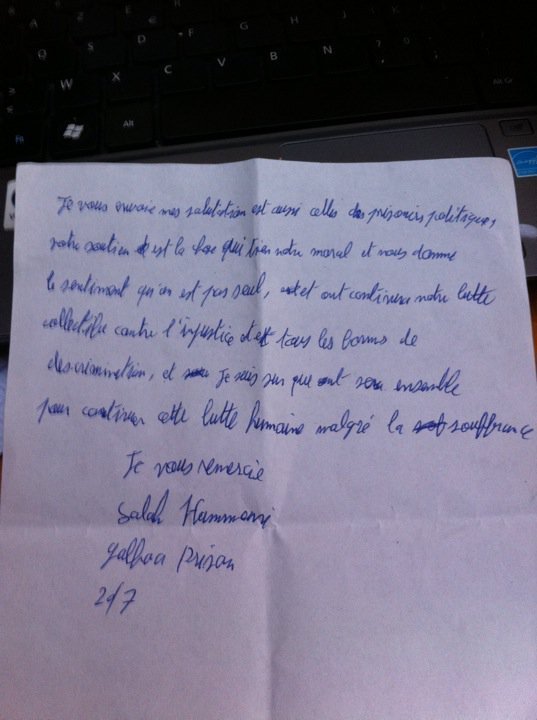 Q S D F G H J K L
W X C V B N
Alt
Alt Gr
Je vous envoie mes salutation est aussi celles des prisoniés politiques,
votre soutien est la qui notre moral et nous donne
le sentiment qu'on est pas seul, et ont continura notre lutte
collective contre l'injustice et tous les forms de
descrimination, et je suis sur que ont sera ensemble
pour continuer cette lutte humaine malgré la souffrance
Je vous remercie
Salah Hammouri
galboa prison
2/7